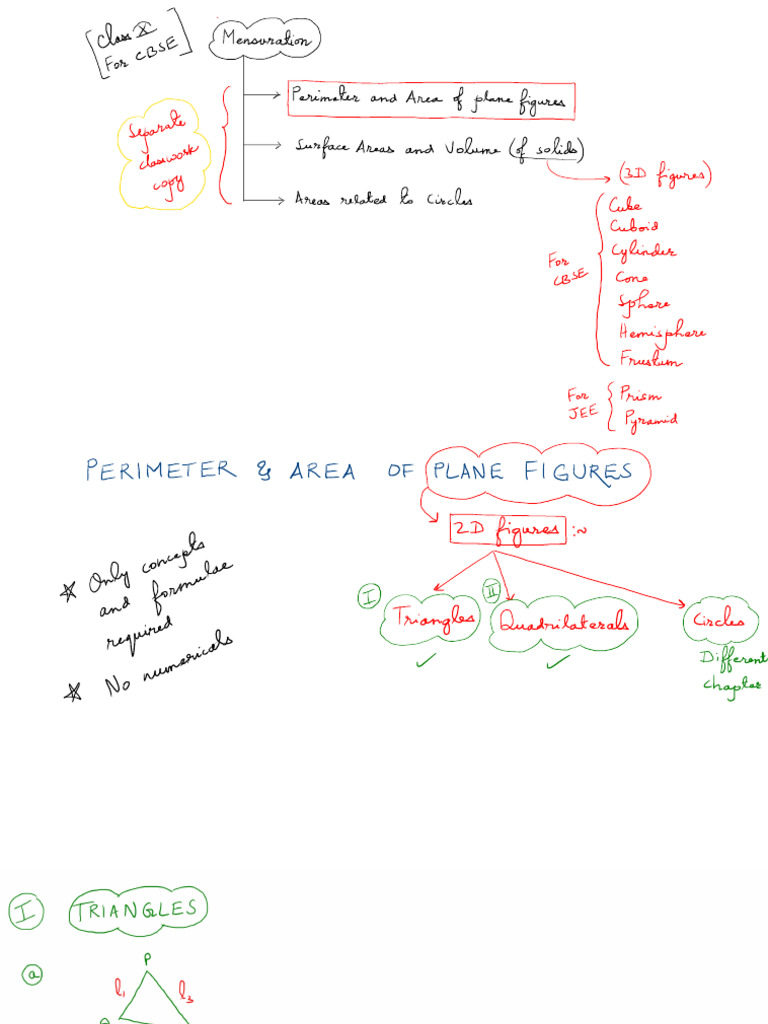 [Class X
For CBSE]
Mensuration
Perimeter and Area of plane figures
Separate
classwork
copy
Surface Areas and Volume (of solids)
Areas related to Circles
(3D figures)
For
CBSE
Cube
Cuboid
Cylinder
Cone
Sphere
Hemisphere
Frustum
For
JEE
Prism
Pyramid
PERIMETER & AREA OF PLANE FIGURES
2D figures :~
* Only concepts
and formulae
required
* No numericals
I
Triangles
II
Quadrilaterals
Circles
✓
✓
Different
chapter
I
TRIANGLES
a
P
l₁
l₃